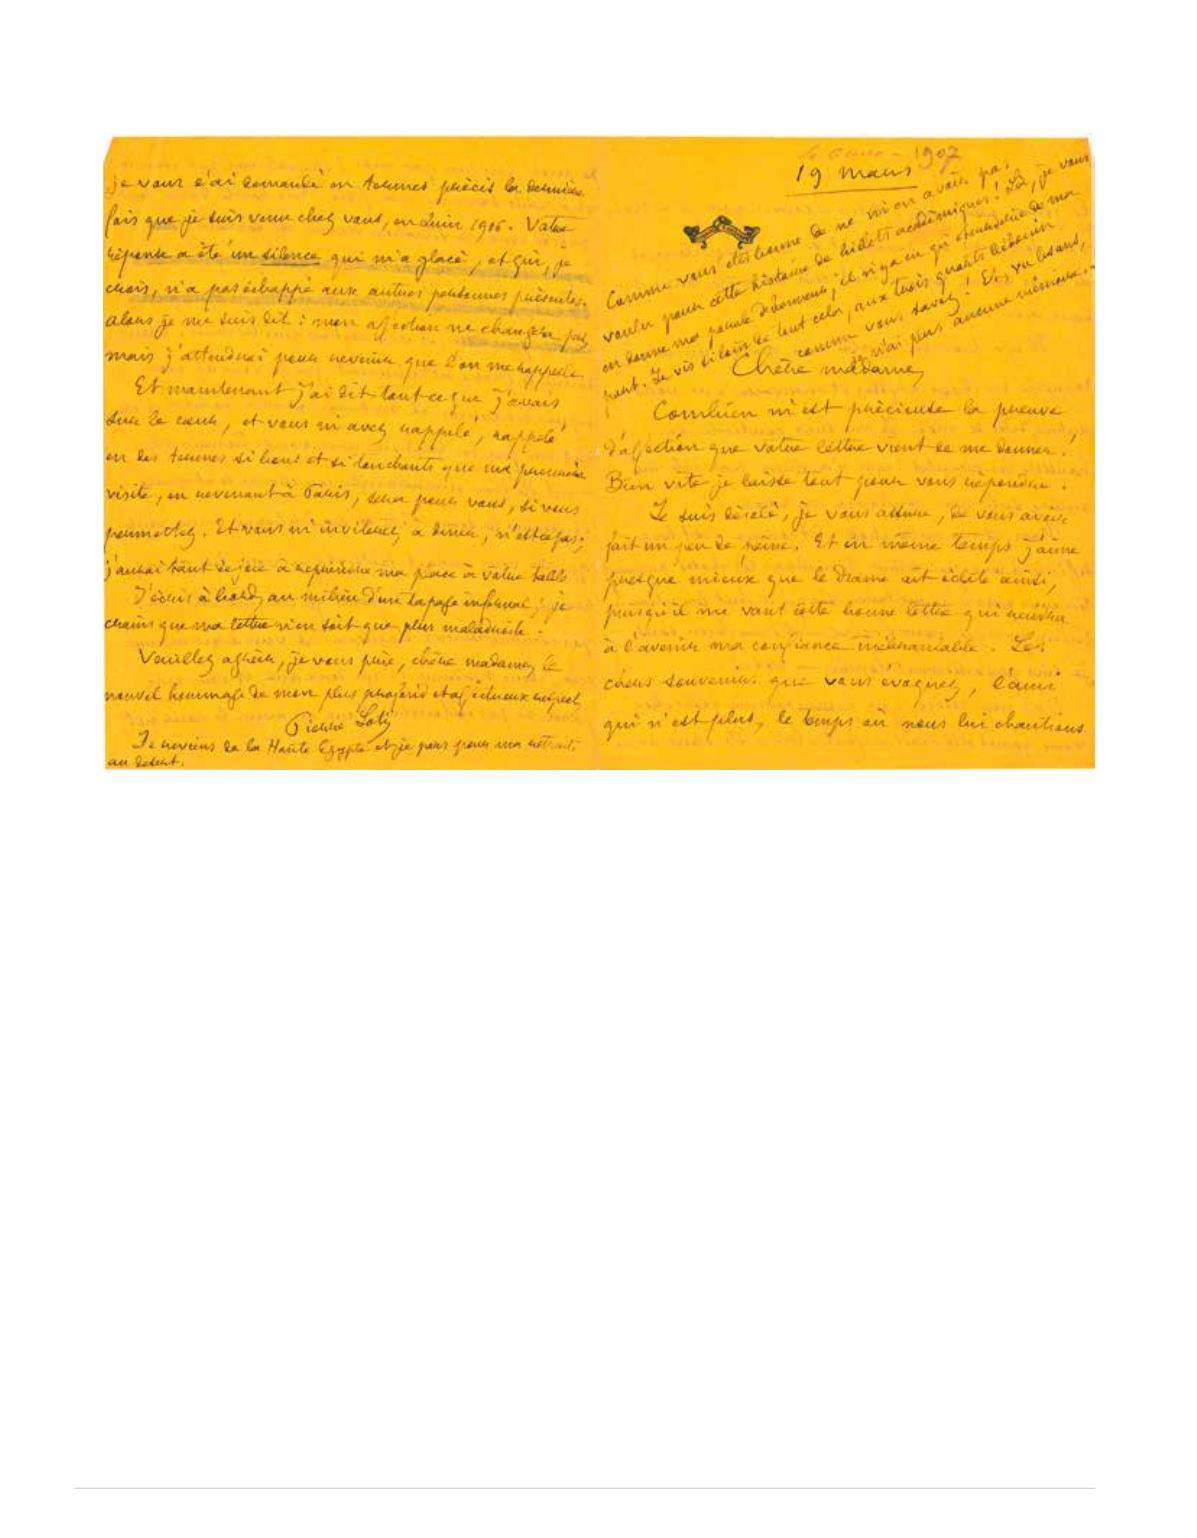 je vous l'ai demandé en termes précis la dernière
fois que je suis venu chez vous, en Juin 1906. Votre
réponse a été un silence qui m'a glacé, et qui, je
crois, n'a pas échappé aux autres personnes présentes.
Alors je me suis dit : mon affection ne changera pas,
mais j'attendrai pour revenir que l'on me rappelle.
Et maintenant j'ai dit tout ce que j'avais
sur le cœur, et vous m'avez rappelé, rappelé
en des termes si bons et si touchants que ma première
visite, en revenant à Paris, sera pour vous, si vous
permettez. Et vous m'inviterez à dîner, n'est-ce pas ;
j'aurai tant de joie à reprendre ma place à votre table
J'écris à bord, au milieu d'un tapage infernal ; je
crains que ma lettre n'en soit que plus maladroite.
Veuillez agréer, je vous prie, chère madame, le
nouvel hommage de mon plus profond et affectueux respect
Pierre Loti
Je reviens de la Haute Egypte et je pars pour ma retraite
au désert.
1907
19 mars
Comme vous êtes bonne de ne m'en avoir pas
voulu pour cette histoire de tickets académiques ! Là, je vous
en donne ma parole d'honneur, il n'y a eu qu'étourderie de ma
part. Je vis si loin de tout cela, aux trois quarts bédouin
comme vous savez ! Et, vu les ans,
je n'ai plus aucune mémoire.
Chère madame,
Combien m'est précieuse la preuve
d'affection que votre lettre vient de me donner !
Bien vite je laisse tout pour vous répondre.
Je suis désolé, je vous assure, de vous avoir
fait un peu de peine. Et en même temps j'aime
presque mieux que le drame ait éclaté ainsi,
puisqu'il me vaut cette bonne lettre qui rendra
à l'avenir ma confiance inébranlable. Les
chers souvenirs que vous évoquez, l'ami
qui n'est plus, le temps où nous lui chantions